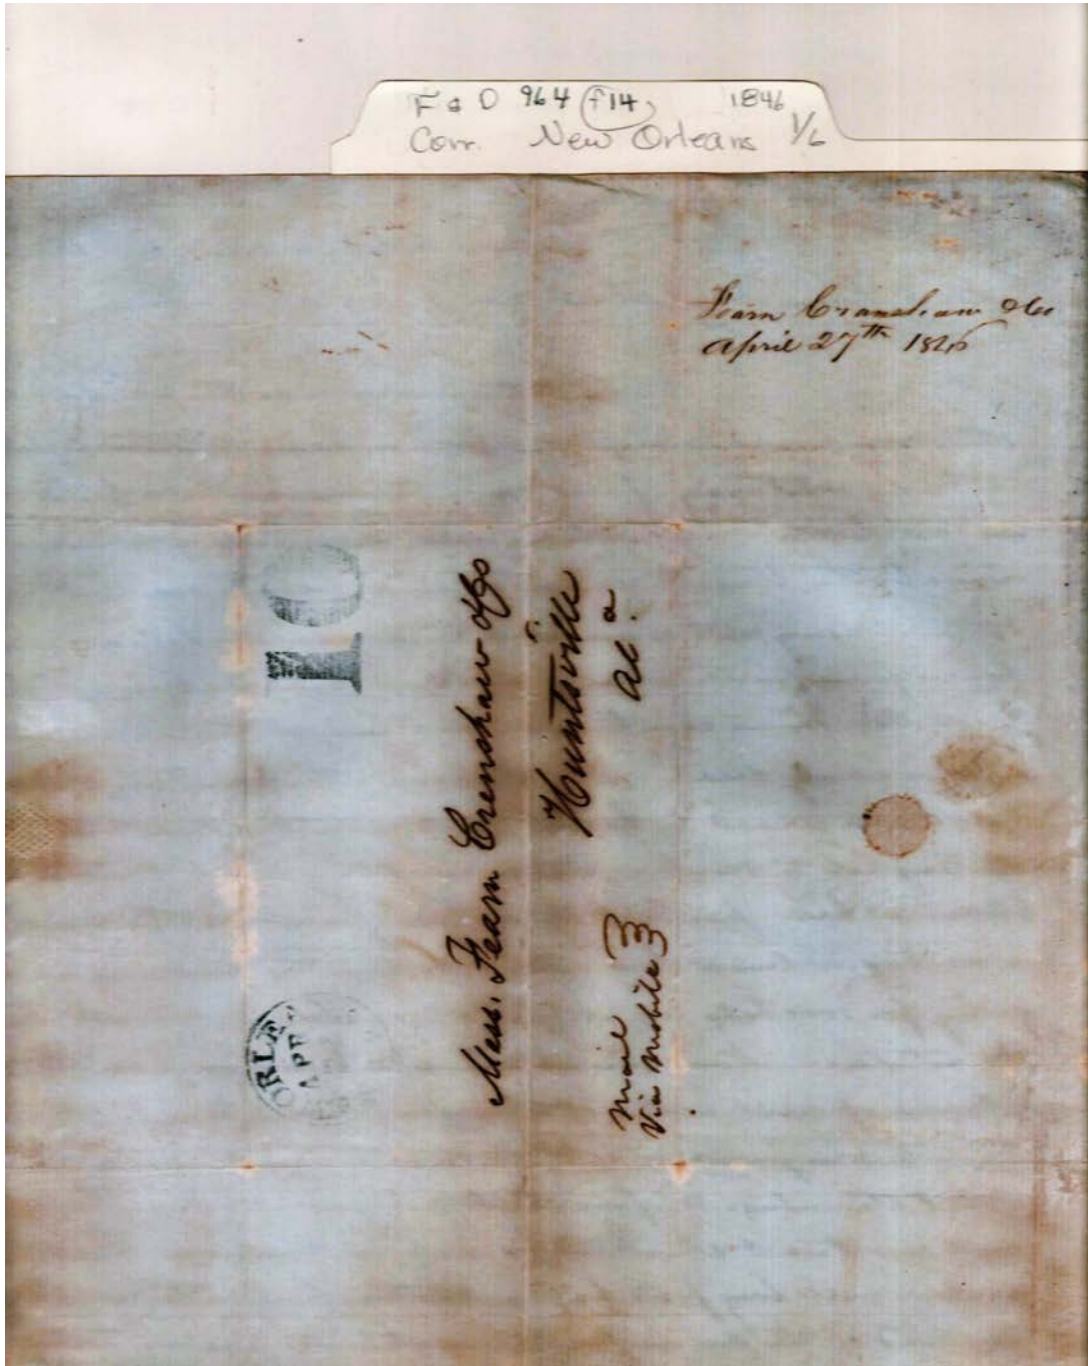 F & D 964 f14 1846
Corr. New Orleans 1/6
Fearn Cranshaw & Co
April 27th 1846
10
Mess. Fearn Crenshaw & Co
Huntsville
Al.a
Mail
Via Mobile
ORLE
APR